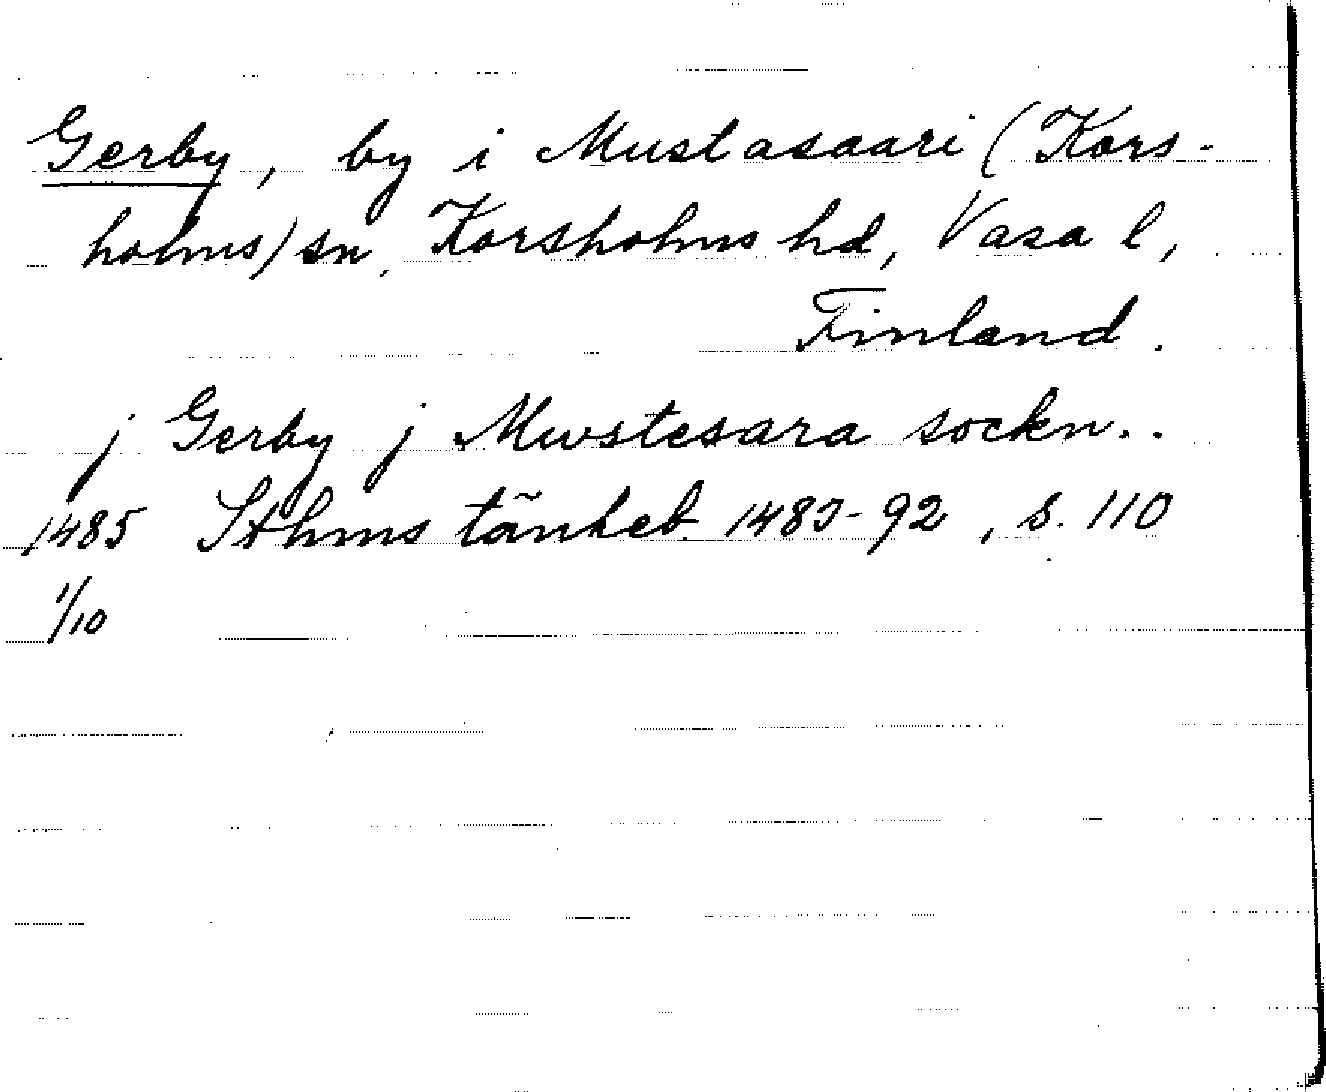 Gerby, by i Mustasaari (Kors-
holms) sn, Korsholms hd, Vasa l,
Finland.
j Gerby j Mwstesara sockn..
1485 Sthms tänkeb. 1483-92, s. 110
1/10